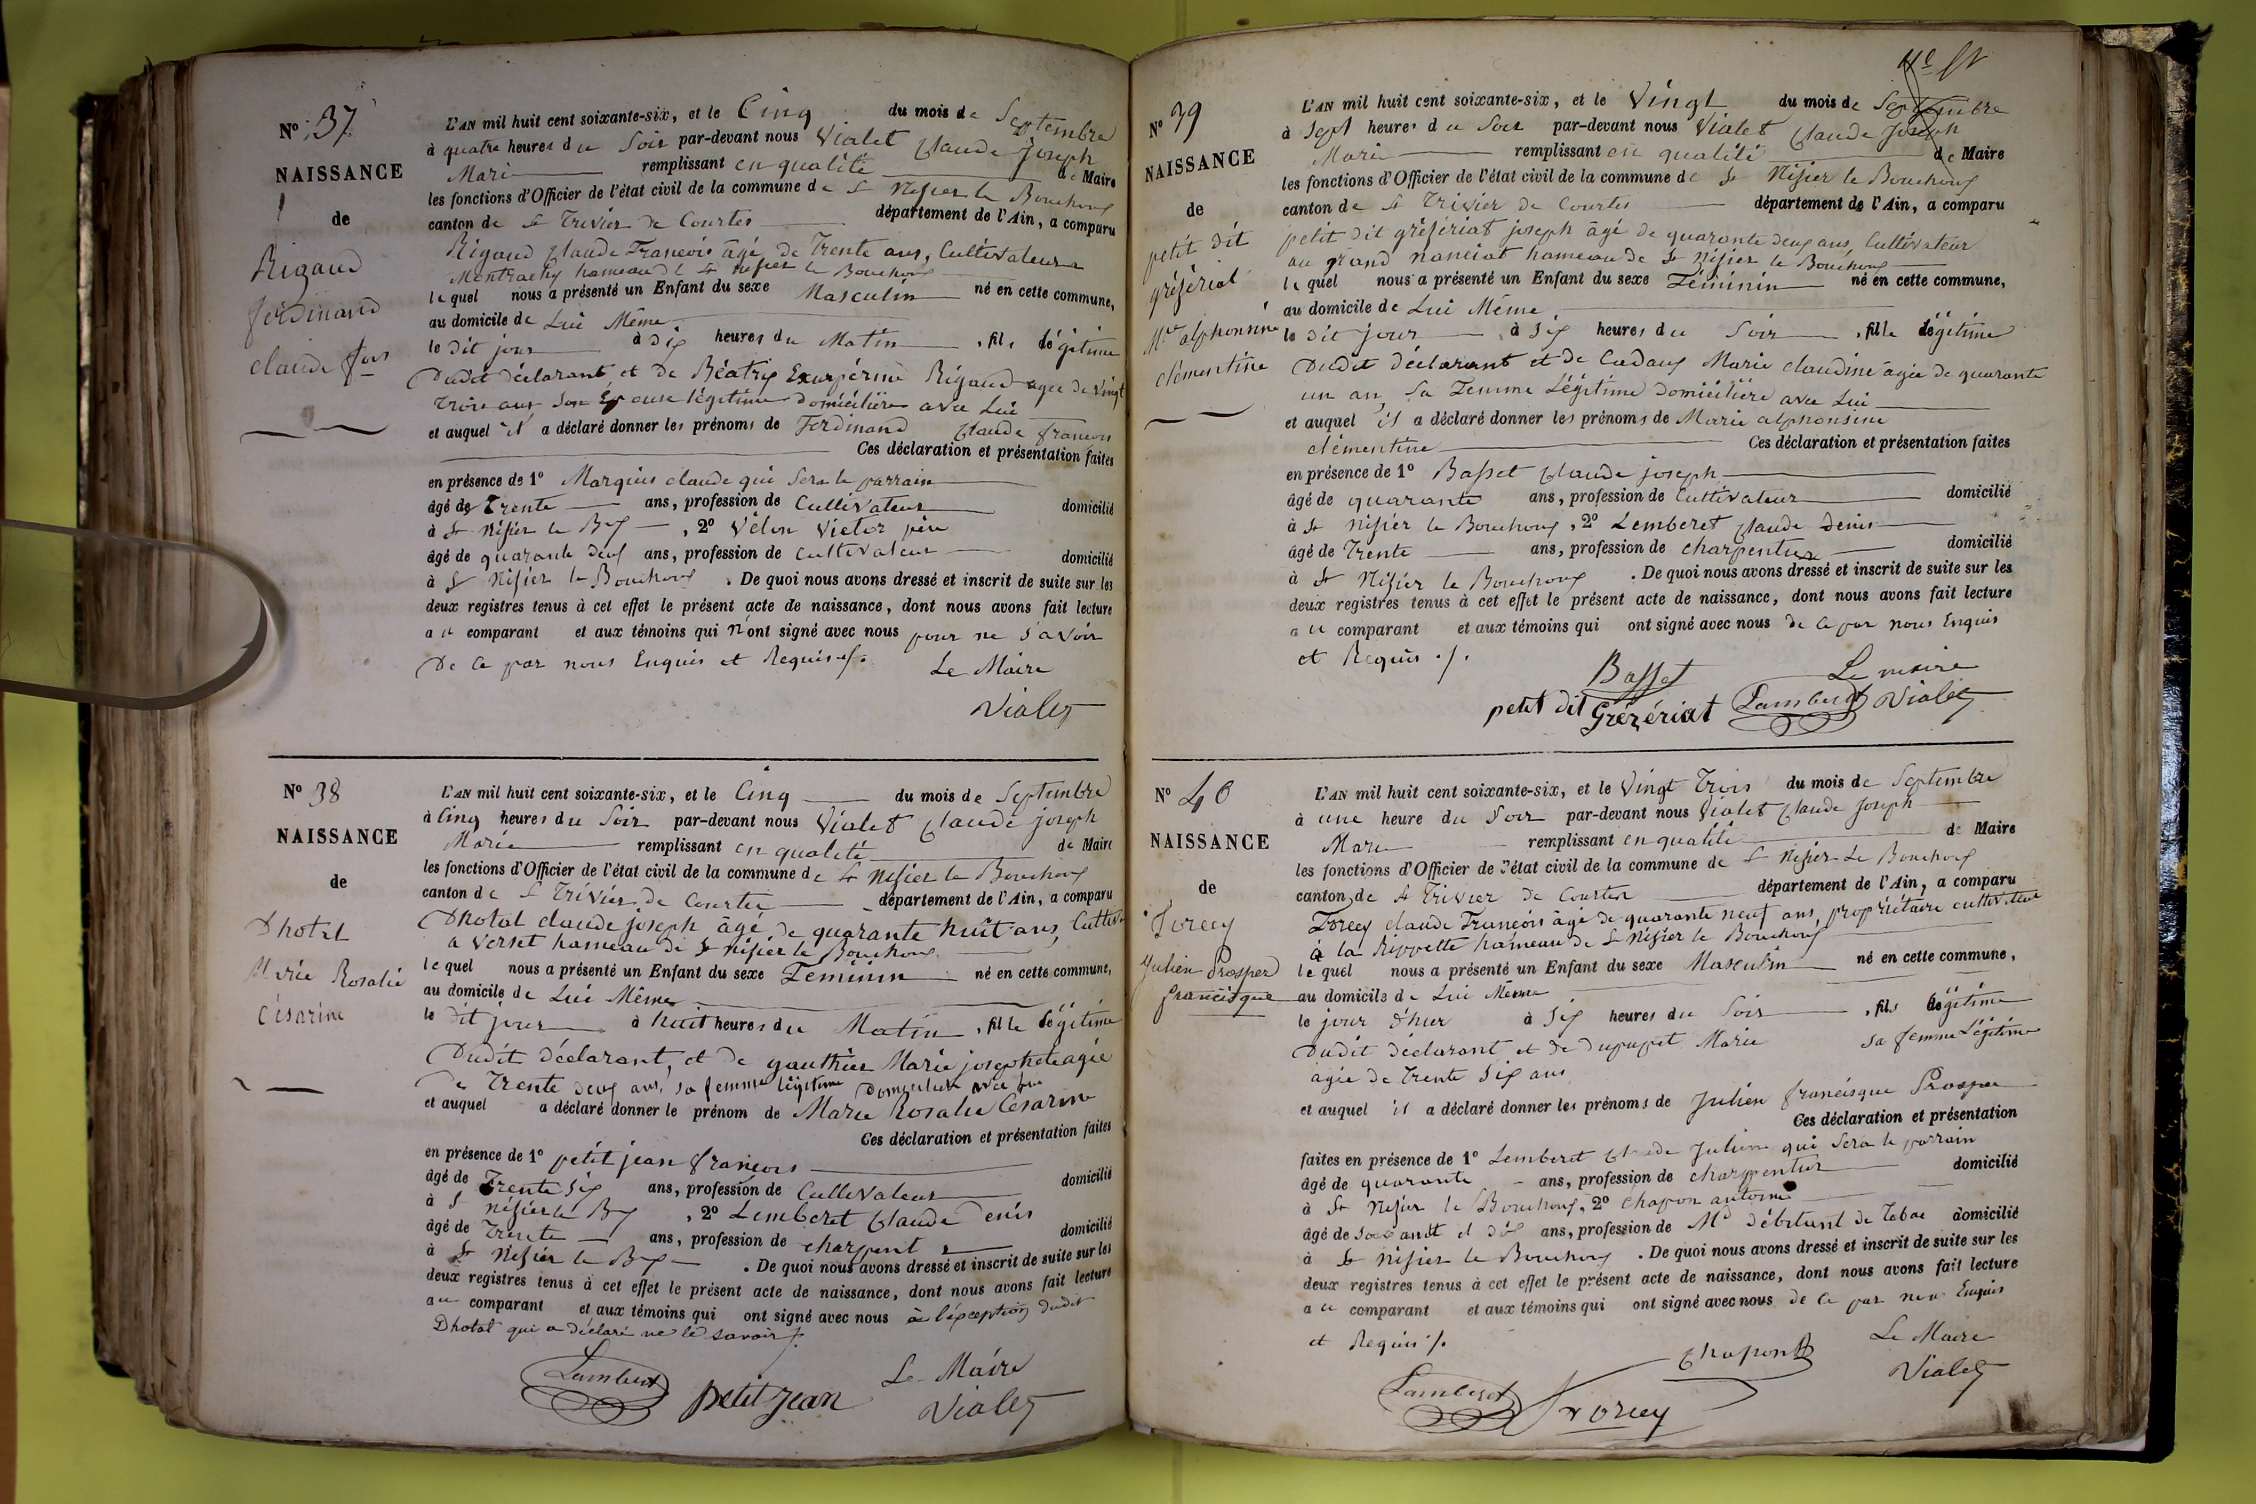 Nº 37
NAISSANCE
de
Rigaud
ferdinand
claude fois
L'AN mil huit cent soixante-six, et le Cinq du mois de Septembre
à quatre heures du Soir par-devant nous Vialet Claude Joseph
Marie remplissant en qualité de Maire
les fonctions d'Officier de l'état civil de la commune de St Nisier le Bouchoux
canton de St Trivier de Courtes département de l'Ain, a comparu
Rigaud Claude Francois âgé de Trente ans, Cultivateur a
hameau de St Nisier le Bouchoux
lequel nous a présenté un Enfant du sexe Masculin né en cette commune,
au domicile de Lui Même
le dit jour à dix heures du Matin, fils légitime
Dudit déclarant et de Béatrix Exupérine Rigaud agée de vingt
trois ans Son Épouse légitime domiciliée avec Lui
et auquel il a déclaré donner les prénoms de Ferdinand Claude francois
Ces déclaration et présentation faites
en présence de 1º Marquis claude qui Sera le parrain
âgé de Trente ans, profession de Cultivateur domicilié
à St Nisier le Bx, 2º Vélon Victor père
âgé de quarante deux ans, profession de cultivateur domicilié
à St Nisier le Bouchoux. De quoi nous avons dressé et inscrit de suite sur les
deux registres tenus à cet effet le présent acte de naissance, dont nous avons fait lecture
au comparant et aux témoins qui n'ont signé avec nous pour ne Savoir
De ce par nous Enquis et Requis ./.
Le Maire
Vialet
Nº 38
NAISSANCE
de
Dhotel
Marie Rosalie
Césarine
L'AN mil huit cent soixante-six, et le Cinq du mois de Septembre
à Cinq heures du Soir par-devant nous Vialet Claude joseph
Marie remplissant en qualité de Maire
les fonctions d'Officier de l'état civil de la commune de St Nisier le Bouchoux
canton de St Trivier de Courtes département de l'Ain, a comparu
Dhotal claude joseph âgé de quarante huit ans, Cultiv
a Verset hameau de St Nisier le Bouchoux
lequel nous a présenté un Enfant du sexe Féminin né en cette commune,
au domicile de Lui Même
le dit jour à huit heures du Matin, fille légitime
Dudit déclarant, et de gauthier Marie josephete agée
de Trente deux ans, sa femme légitime Domiciliée avec lui
et auquel a déclaré donner le prénom de Marie Rosalie Césarine
Ces déclaration et présentation faites
en présence de 1º petit jean françois
âgé de Trente Six ans, profession de Cultivateur domicilié
à St nisier le Bx, 2º Lemberet Claude Denis
âgé de Trente ans, profession de charpentier domicilié
à St Nisier le Bx. De quoi nous avons dressé et inscrit de suite sur les
deux registres tenus à cet effet le présent acte de naissance, dont nous avons fait lecture
au comparant et aux témoins qui ont signé avec nous à l'exception dudit
Dhotal qui a déclaré ne le savoir ./.
Lamberet petitjean Le Maire
Vialet
Nº 39
NAISSANCE
de
petit dit
gréfériat
Mie alphonsine
clémentine
L'AN mil huit cent soixante-six, et le Vingt du mois de Septembre
à Sept heures du Soir par-devant nous Vialet Claude Joseph
Marie remplissant en qualité de Maire
les fonctions d'Officier de l'état civil de la commune de St Nisier le Bouchoux
canton de St Trivier de Courtes département de l'Ain, a comparu
petit dit grésériat joseph âgé de quarante deux ans, Cultivateur
au grand nanciat hameau de St Nisier le Bouchoux
lequel nous a présenté un Enfant du sexe Féminin né en cette commune,
au domicile de Lui Même
le dit jour à Six heures du Soir, fille légitime
Dudit déclarant et de Cadaux Marie claudine agée de quarante
un an, Sa Femme Légitime domiciliée avec Lui
et auquel il a déclaré donner les prénoms de Marie alphonsine
clémentine Ces déclaration et présentation faites
en présence de 1º Basset Claude joseph
âgé de quarante ans, profession de Cultivateur domicilié
à St Nisier le Bouchoux, 2º Lemberet Claude Denis
âgé de Trente ans, profession de charpentier domicilié
à St Nisier le Bouchoux. De quoi nous avons dressé et inscrit de suite sur les
deux registres tenus à cet effet le présent acte de naissance, dont nous avons fait lecture
au comparant et aux témoins qui ont signé avec nous de ce par nous Enquis
et Requis ./.
Basset Le maire
petit dit Grézériat Lamberet Vialet
Nº 40
NAISSANCE
de
Forcey
Julien Prosper
francisque
L'AN mil huit cent soixante-six, et le Vingt Trois du mois de Septembre
à une heure du Soir par-devant nous Vialet Claude Joseph
Marie remplissant en qualité de Maire
les fonctions d'Officier de l'état civil de la commune de St Nisier Le Bouchoux
canton de St Trivier de Courtes département de l'Ain, a comparu
Forcey claude François âgé de quarante neuf ans, propriétaire cultivateur
à la Rippette hameau de St Nisier le Bouchoux
lequel nous a présenté un Enfant du sexe Masculin né en cette commune,
au domicile de Lui Même
le jour d'hier à Six heures du Soir, fils légitime
Dudit déclarant et de dupupet Marie sa femme Légitime
agée de Trente Six ans
et auquel il a déclaré donner les prénoms de Julien francisque Prosper
Ces déclaration et présentation
faites en présence de 1º Lemberet Claude Julien qui Sera le parrain
âgé de quarante ans, profession de charpentier domicilié
à St Nisier le Bouchoux, 2º Chapon antoine
âgé de Soixante et dix ans, profession de Md débitant de Tabac domicilié
à St Nisier le Bouchoux. De quoi nous avons dressé et inscrit de suite sur les
deux registres tenus à cet effet le présent acte de naissance, dont nous avons fait lecture
au comparant et aux témoins qui ont signé avec nous de ce par nous Enquis
et Requis ./.
Chapon Le Maire
Lamberet Forcey Vialet